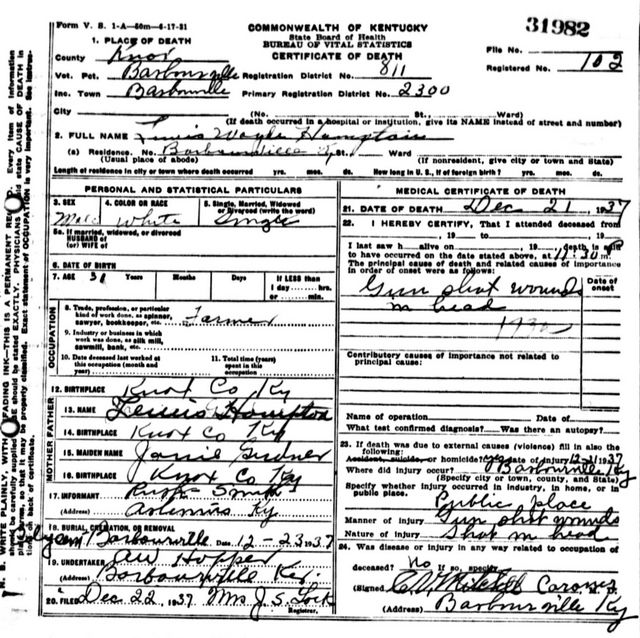 Form V. S. 1-A—50m—6-17-31
COMMONWEALTH OF KENTUCKY
State Board of Health
BUREAU OF VITAL STATISTICS
CERTIFICATE OF DEATH
31982
File No.
Registered No. 102
1. PLACE OF DEATH
County Knox
Vot. Pct. Barbourville Registration District No. 811
Inc. Town Barbourville Primary Registration District No. 2300
City (No. St., Ward)
(If death occurred in a hospital or institution, give its NAME instead of street and number)
2. FULL NAME Lewis Hampton
(a) Residence. No. Barbourville Ky St., Ward
(Usual place of abode) (If nonresident, give city or town and State)
Length of residence in city or town where death occurred yrs. mos. ds. How long in U. S., if of foreign birth? yrs. mos. ds.
PERSONAL AND STATISTICAL PARTICULARS
3. SEX Male
4. COLOR OR RACE White
5. Single, Married, Widowed or Divorced (write the word) Single
5a. If married, widowed, or divorced
HUSBAND of
(or) WIFE of
6. DATE OF BIRTH
7. AGE 31 Years Months Days
If LESS than
1 day hrs.
or min.
OCCUPATION
8. Trade, profession, or particular
kind of work done, as spinner,
sawyer, bookkeeper, etc. Farmer
9. Industry or business in which
work was done, as silk mill,
sawmill, bank, etc.
10. Date deceased last worked at
this occupation (month and
year)
11. Total time (years)
spent in this
occupation
12. BIRTHPLACE Knox Co Ky
FATHER
13. NAME Lewis Hampton
14. BIRTHPLACE Knox Co Ky
MOTHER
15. MAIDEN NAME Janie
16. BIRTHPLACE Knox Co Ky
17. INFORMANT Smith
(Address) Artemus Ky.
18. BURIAL, CREMATION, OR REMOVAL
Barbourville 12-23-37
19. UNDERTAKER AW Hopper
(Address) Barbourville Ky.
20. FILED Dec 22, 1937 Mrs J. S. Lock
Registrar.
MEDICAL CERTIFICATE OF DEATH
21. DATE OF DEATH Dec 21 1937
22. I HEREBY CERTIFY, That I attended deceased from
, 19 to , 19
I last saw h alive on , 19 , death is said
to have occurred on the date stated above, at 11:30 m.
The principal cause of death and related causes of importance
in order of onset were as follows:
Date of onset
Gun shot wounds
in head
Contributory causes of importance not related to
principal cause:
Name of operation Date of
What test confirmed diagnosis? Was there an autopsy?
23. If death was due to external causes (violence) fill in also the
following:
Accident, suicide, or homicide? Date of injury 12-21 1937
Where did injury occur? Barbourville Ky
(Specify city or town, county, and State)
Specify whether injury occurred in industry, in home, or in
public place. Public place
Manner of injury Gun shot wounds
Nature of injury Shot in head
24. Was disease or injury in any way related to occupation of
deceased? No If so, specify
(Signed) Mitchell Coroner M. D.
(Address) Barbourville Ky